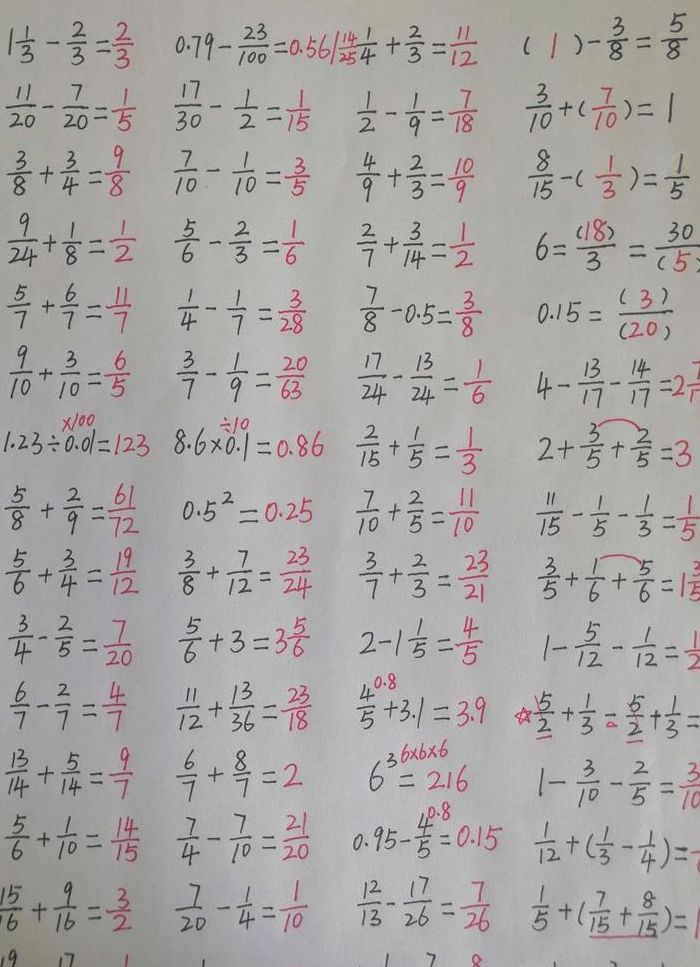 1 1/3 - 2/3 = 2/3    0.79 - 23/100 = 0.56 | 14/25    1/4 + 2/3 = 11/12    ( 1 ) - 3/8 = 5/8
11/20 - 7/20 = 1/5    17/30 - 1/2 = 1/15    1/2 - 1/9 = 7/18    3/10 + ( 7/10 ) = 1
3/8 + 3/4 = 9/8    7/10 - 1/10 = 3/5    4/9 + 2/3 = 10/9    8/15 - ( 1/3 ) = 1/5
9/24 + 1/8 = 1/2    5/6 - 2/3 = 1/6    2/7 + 3/14 = 1/2    6 = (18)/3 = 30/(5)
5/7 + 6/7 = 11/7    1/4 - 1/7 = 3/28    7/8 - 0.5 = 3/8    0.15 = (3)/(20)
9/10 + 3/10 = 6/5    3/7 - 1/9 = 20/63    17/24 - 13/24 = 1/6    4 - 13/17 - 14/17 = 2
×100    ÷10
1.23 ÷ 0.01 = 123    8.6 × 0.1 = 0.86    2/15 + 1/5 = 1/3    2 + 3/5 + 2/5 = 3
5/8 + 2/9 = 61/72    0.5² = 0.25    7/10 + 2/5 = 11/10    11/15 - 1/5 - 1/3 = 1/5
5/6 + 3/4 = 19/12    3/8 + 7/12 = 23/24    3/7 + 2/3 = 23/21    3/5 + 1/6 + 5/6 = 1 3/5
3/4 - 2/5 = 7/20    5/6 + 3 = 3 5/6    2 - 1 1/5 = 4/5    1 - 5/12 - 1/12 = 1/2
0.8
6/7 - 2/7 = 4/7    11/12 + 13/36 = 23/18    4/5 + 3.1 = 3.9    ☆ 5/2 + 1/3 - 5/2 + 1/3 =
6×6×6
13/14 + 5/14 = 9/7    6/7 + 8/7 = 2    6³ = 216    1 - 3/10 - 2/5 = 3/10
0.8
5/6 + 1/10 = 14/15    7/4 - 7/10 = 21/20    0.95 - 4/5 = 0.15    1/12 + (1/3 - 1/4) =
15/16 + 9/16 = 3/2    7/20 - 1/4 = 1/10    12/13 - 17/26 = 7/26    1/5 + (7/15 + 8/15) = 1